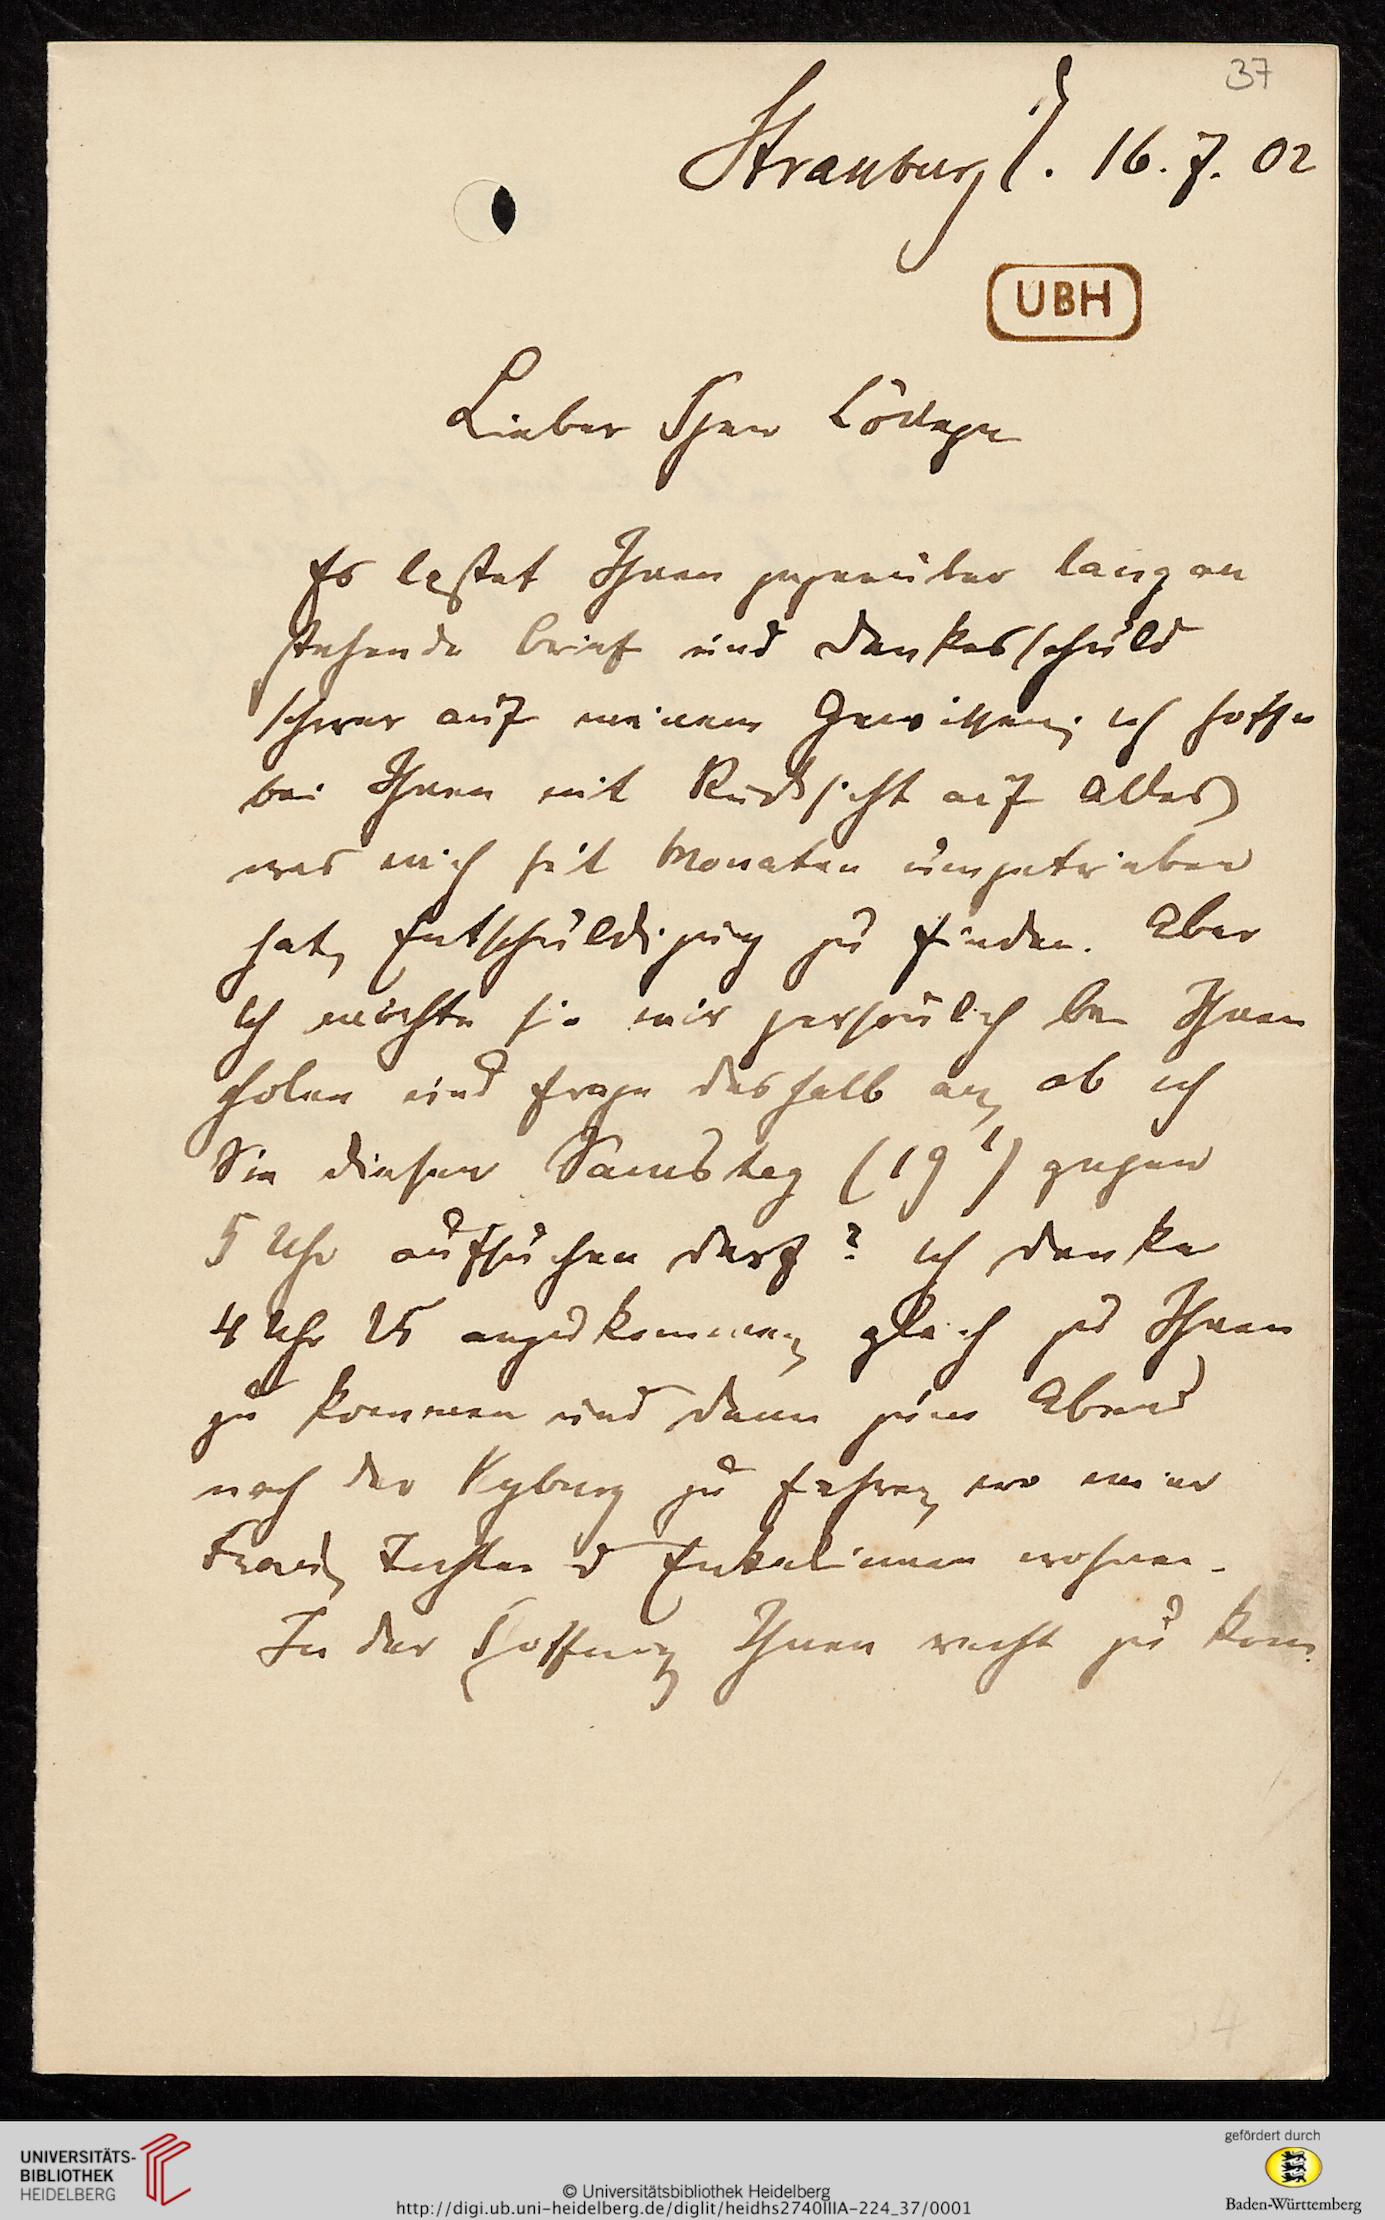 37
Strassburg E. 16. 7. 02
UBH
Lieber Herr College
Es lastet Ihnen gegenüber lang an
stehende Brief und Dankesschuld
schwer auf meinem Gewissen; ich hoffe
bei Ihnen mit Rücksicht auf Alles,
was mich seit Monaten umgetrieben
hat, Entschuldigung zu finden. Aber
ich möchte sie mir persönlich bei Ihnen
holen und frage deshalb an, ob ich
Sie diesen Samstag (19t) gegen
5 Uhr aufsuchen darf? Ich denke
4 Uhr 25 anzukommen, gleich zu Ihnen
zu kommen und dann zum Abend
nach der Kyburg zu fahren, wo meine
Frau, Tochter u Enkelinnen wohnen.
In der Hoffnung Ihnen recht zu kom
UNIVERSITÄTS-
BIBLIOTHEK
HEIDELBERG
© Universitätsbibliothek Heidelberg
http://digi.ub.uni-heidelberg.de/diglit/heidhs2740IIIA-224_37/0001
gefördert durch
Baden-Württemberg